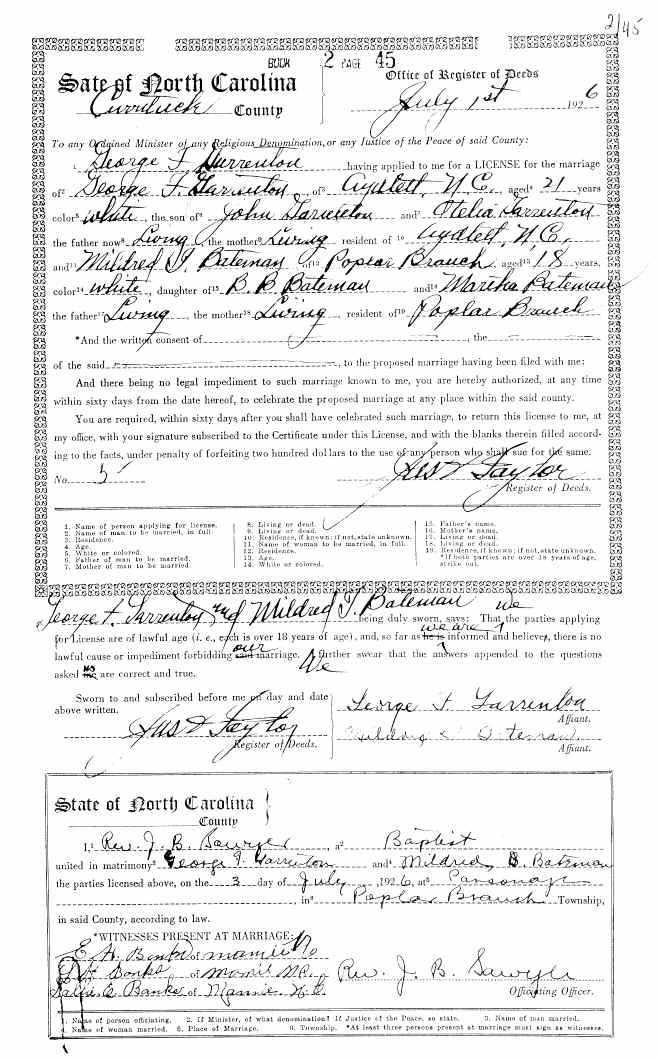 2/45
BOOK 2 PAGE 45
Sate of North Carolina
Office of Register of Deeds
Currituck County
July 1st 1926
To any Ordained Minister of any Religious Denomination, or any Justice of the Peace of said County:
1. George F Tarrenton having applied to me for a LICENSE for the marriage
of2 George F. Tarrenton, of3 Aydlett, N.C. aged4 21 years
color5 white, the son of6 John Tarrenton and7 Otelia Tarrenton
the father now8 Living, the mother9 Living resident of10 Aydlett, N.C.
and11 Mildred I. Bateman of12 Poplar Branch, aged13 18 years,
color14 white, daughter of15 B. B Bateman and16 Martha Bateman
the father17 Living, the mother18 Living, resident of19 Poplar Branch
*And the written consent of , the
of the said , to the proposed marriage having been filed with me:
And there being no legal impediment to such marriage known to me, you are hereby authorized, at any time
within sixty days from the date hereof, to celebrate the proposed marriage at any place within the said county.
You are required, within sixty days after you shall have celebrated such marriage, to return this license to me, at
my office, with your signature subscribed to the Certificate under this License, and with the blanks therein filled accord-
ing to the facts, under penalty of forfeiting two hundred dollars to the use of any person who shall sue for the same.
No. 5 Taylor
Register of Deeds.
1. Name of person applying for license. 8. Living or dead. 15. Father's name.
2. Name of man to be married, in full. 9. Living or dead. 16. Mother's name.
3. Residence. 10. Residence, if known; if not, state unknown. 17. Living or dead.
4. Age. 11. Name of woman to be married, in full. 18. Living or dead.
5. White or colored. 12. Residence. 19. Residence, if known; if not, state unknown.
6. Father of man to be married. 13. Age. *If both parties are over 18 years of age,
7. Mother of man to be married. 14. White or colored. strike out.
George F. Tarrenton and Mildred I. Bateman we
being duly sworn, says: That the parties applying
for License are of lawful age (i. e., each is over 18 years of age), and, so far as he is we are informed and believe, there is no
lawful cause or impediment forbidding said our marriage. We further swear that the answers appended to the questions
asked are correct and true.
Sworn to and subscribed before me on day and date
above written.
George F Tarrenton
Affiant.
Taylor
Register of Deeds.
Affiant.
State of North Carolina
County
I,1 Rev. J. B. Sawyer, a2 Baptist
united in matrimony3 George F. Tarrenton and4 Mildred Bateman
the parties licensed above, on the 3 day of July, 1926, at5 Parsonage
, in6 Poplar Branch Township,
in said County, according to law.
*WITNESSES PRESENT AT MARRIAGE:
E. H. Banks of Mamie NC
Banks of Mamie NC.
Sallie C. Banks of Mamie N.C.
Rev. J. B. Sawyer
Officiating Officer.
1. Name of person officiating. 2. If Minister, of what denomination? If Justice of the Peace, so state. 3. Name of man married.
4. Name of woman married. 5. Place of Marriage. 6. Township. *At least three persons present at marriage must sign as witnesses.